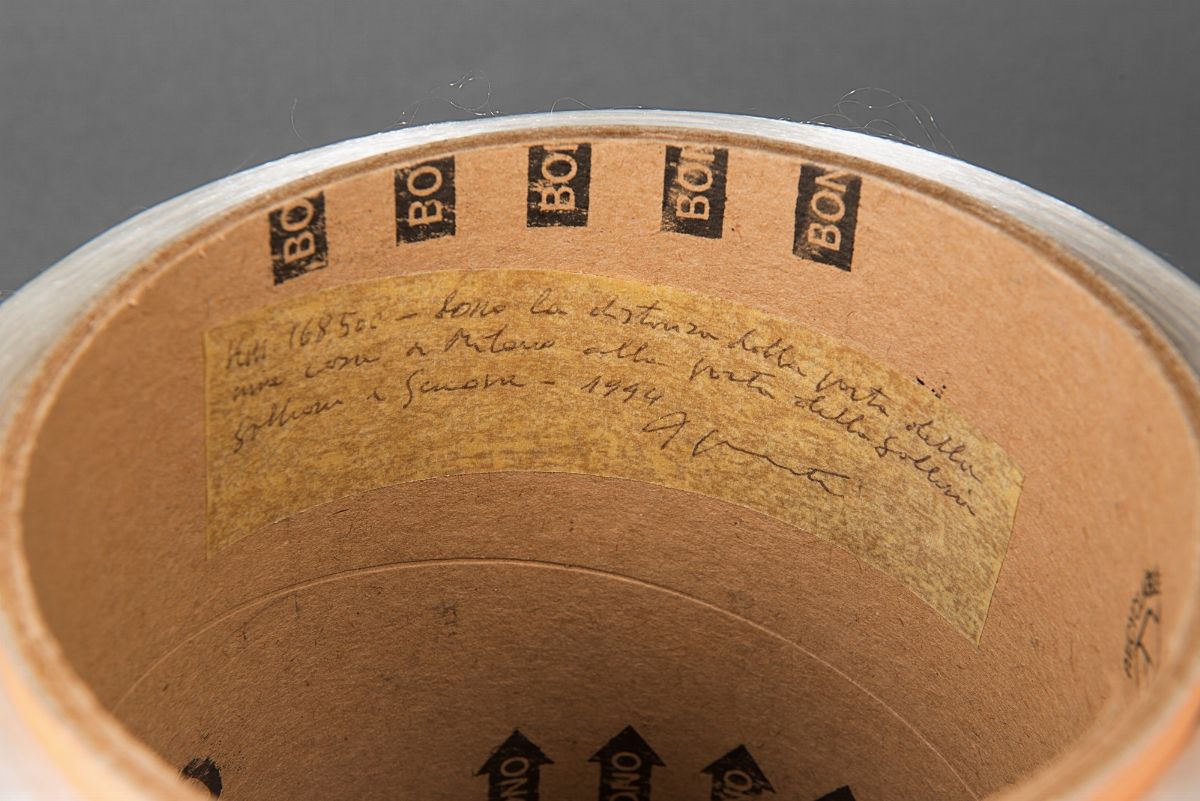 BO
BO
BON
BON
BON
Km 168.500 – Sono la distanza dalla porta della
mia casa a Milano alla porta della galleria
a Genova – 1994
ONO
ONO
NO